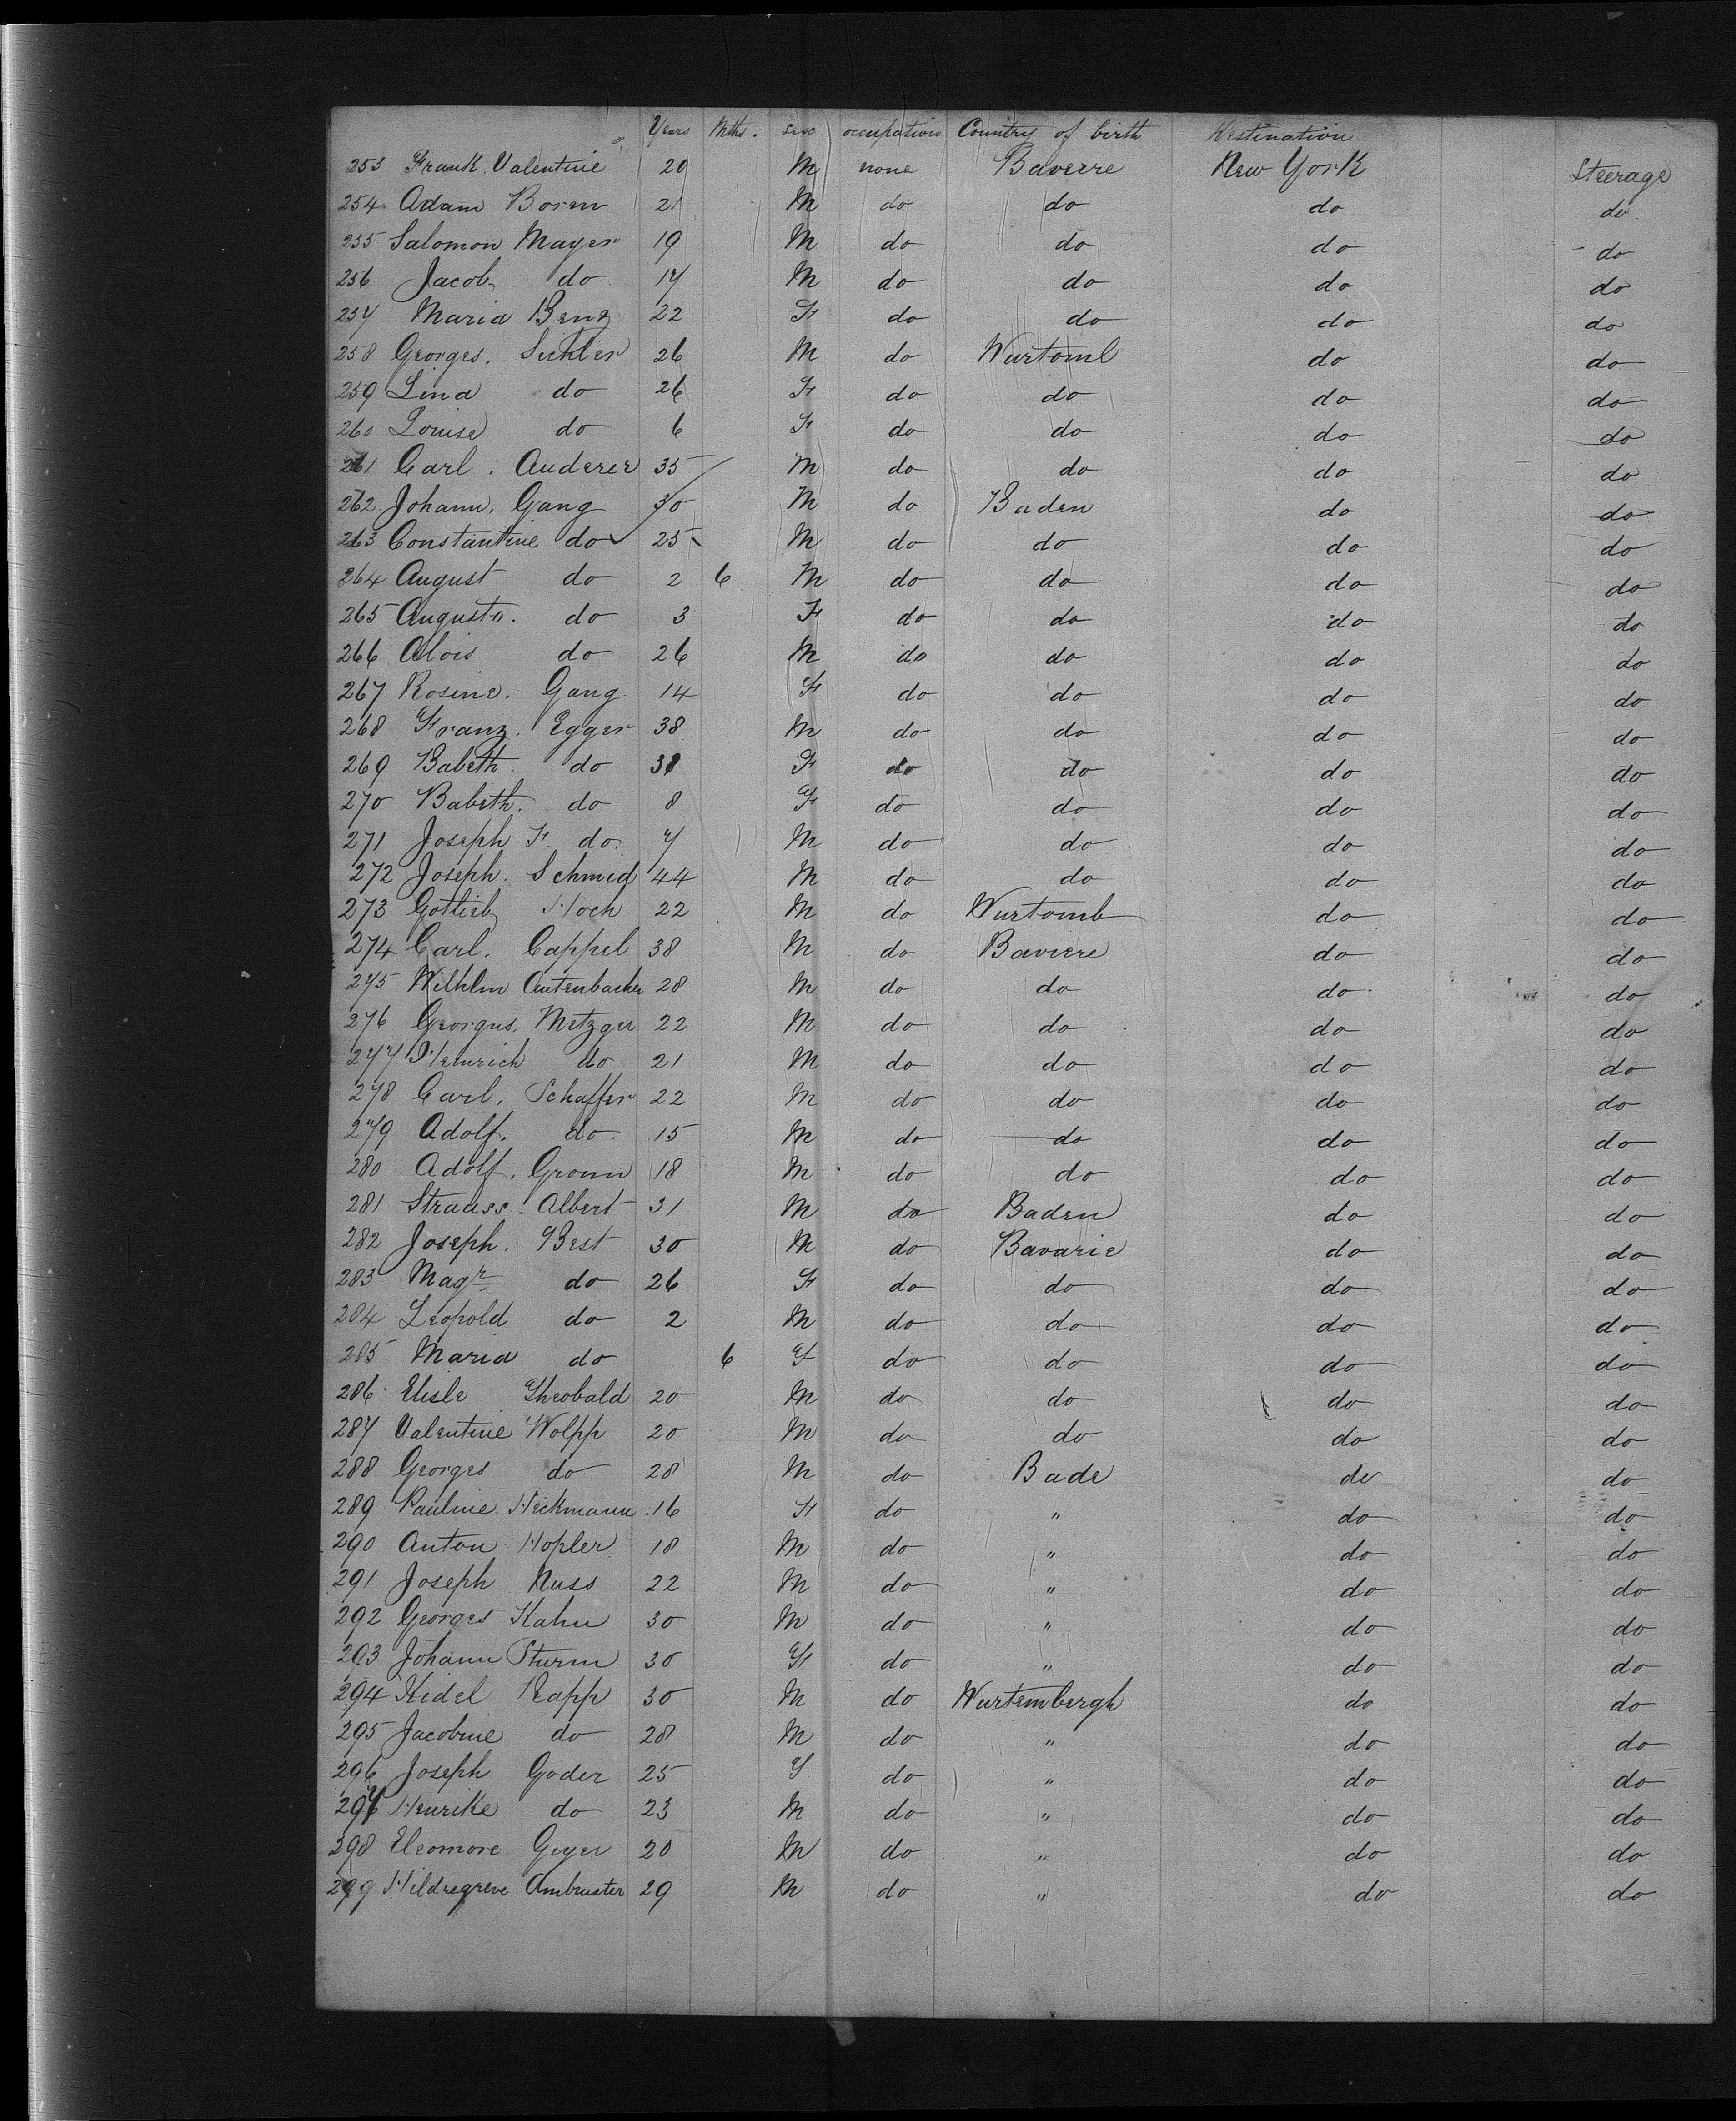 Years Mths. sexe occupation Country of birth Destination
253 Frank Valentine 20 M none Baviere New York Steerage
254 Adam Boren 21 M do do do do
255 Salomon Mayer 19 M do do do do
256 Jacob do 17 M do do do do
257 Maria Benz 22 F do do do do
258 Georges. Sichler 26 M do Wurtoml do do
259 Lina do 26 F do do do do
260 Louise do 6 F do do do do
261 Carl. Auderer 35 M do do do do
262 Johann. Gang 30 M do Baden do do
263 Constantine do 25 M do do do do
264 August do 2 6 M do do do do
265 Augusta. do 3 F do do do do
266 Alois do 26 M do do do do
267 Rosine. Gang 14 F do do do do
268 Franz. Egger 38 M do do do do
269 Babeth. do 38 F do do do do
270 Babeth. do 8 F do do do do
271 Joseph F. do. 7 M do do do do
272 Joseph. Schmid 44 M do do do do
273 Gotlieb Hoch 22 M do Wurtomb do do
274 Carl. Cappel 38 M do Baviere do do
275 Wilhlm Autenbacher 28 M do do do do
276 Georgus. Metzger 22 M do do do do
277 Heinrich do 21 M do do do do
278 Carl. Schaffer 22 M do do do do
279 Adolf. do. 15 M do do do do
280 Adolf. Gronn 18 M do do do do
281 Strauss. Albert 31 M do Baden do do
282 Joseph. Best 30 M do Bavarie do do
283 Magr do 26 F do do do do
284 Leopold do 2 M do do do do
285 Maria do 6 F do do do do
286 Elisle Theobald 20 M do do do do
287 Valentine Wolpp 20 M do do do do
288 Georges do 28 M do Bade do do
289 Pauline Heckmann 16 F do " do do
290 Anton Hopler 18 M do " do do
291 Joseph Nuss 22 M do " do do
292 Georges Kahn 30 M do " do do
293 Johann Sturm 30 F do " do do
294 Fidel Rapp 30 M do Wurtembergh do do
295 Jacobine do 28 M do " do do
296 Joseph Goder 25 F do " do do
297 Henrike do 23 M do " do do
298 Eleomore Geyer 20 M do " do do
299 Hildregreve Ambruster 29 M do " do do